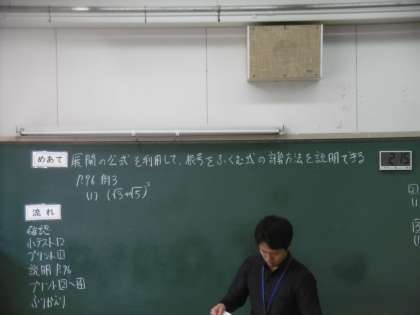 めあて 展開の公式を利用して、根号をふくむ式の計算方法を説明できる
P.96 例3
(1) (√3+√5)²
2:15
流れ
確認
小テスト12
プリント①
説明 P.96
プリント②〜④
ふりかえり